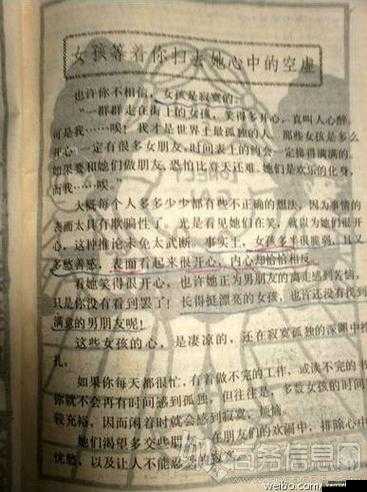 女孩等着你扫去她心中的空虚
也许你不相信，女孩是寂寞的。
“一群群走在街上的女孩，笑得多开心，真叫人心醉，
可是我……唉！我才是世界上最孤独的人，那些女孩是多么
开心，一定有很多女朋友，时间表上的约会一定排得满满的。
如果要和她们做朋友，恐怕比登天还难。她们是欢乐的化身，
而我……唉！
大概每个人多多少少都有些不正确的想法，因为事情的
表面太具有欺骗性了。光是看见她们在笑，就以为她们很开
心，这种推论未免太武断。事实上，女孩多半很脆弱，且又
多愁善感，表面看起来很开心，内心却恰恰相反。
看她笑得很开心，也许她正为男朋友的离走感到苦恼，
只是你没有看到罢了！长得挺漂亮的女孩，也许还没有找到
满意的男朋友呢！
这些女孩的心，是凄凉的，还在寂寞孤独的深渊中挣
扎。
如果你每天都很忙，有着做不完的工作，或读不完的书，
你就不会再有时间感到孤独。但往往是，多数女孩的时间
较充裕，因而闲着时就会感到寂寞、烦恼。
她们渴望多交些朋友，在朋友们的欢闹中，排除心中
忧愁，以及让人不能忍受的寂寞。
商务信息网
weibo.com/